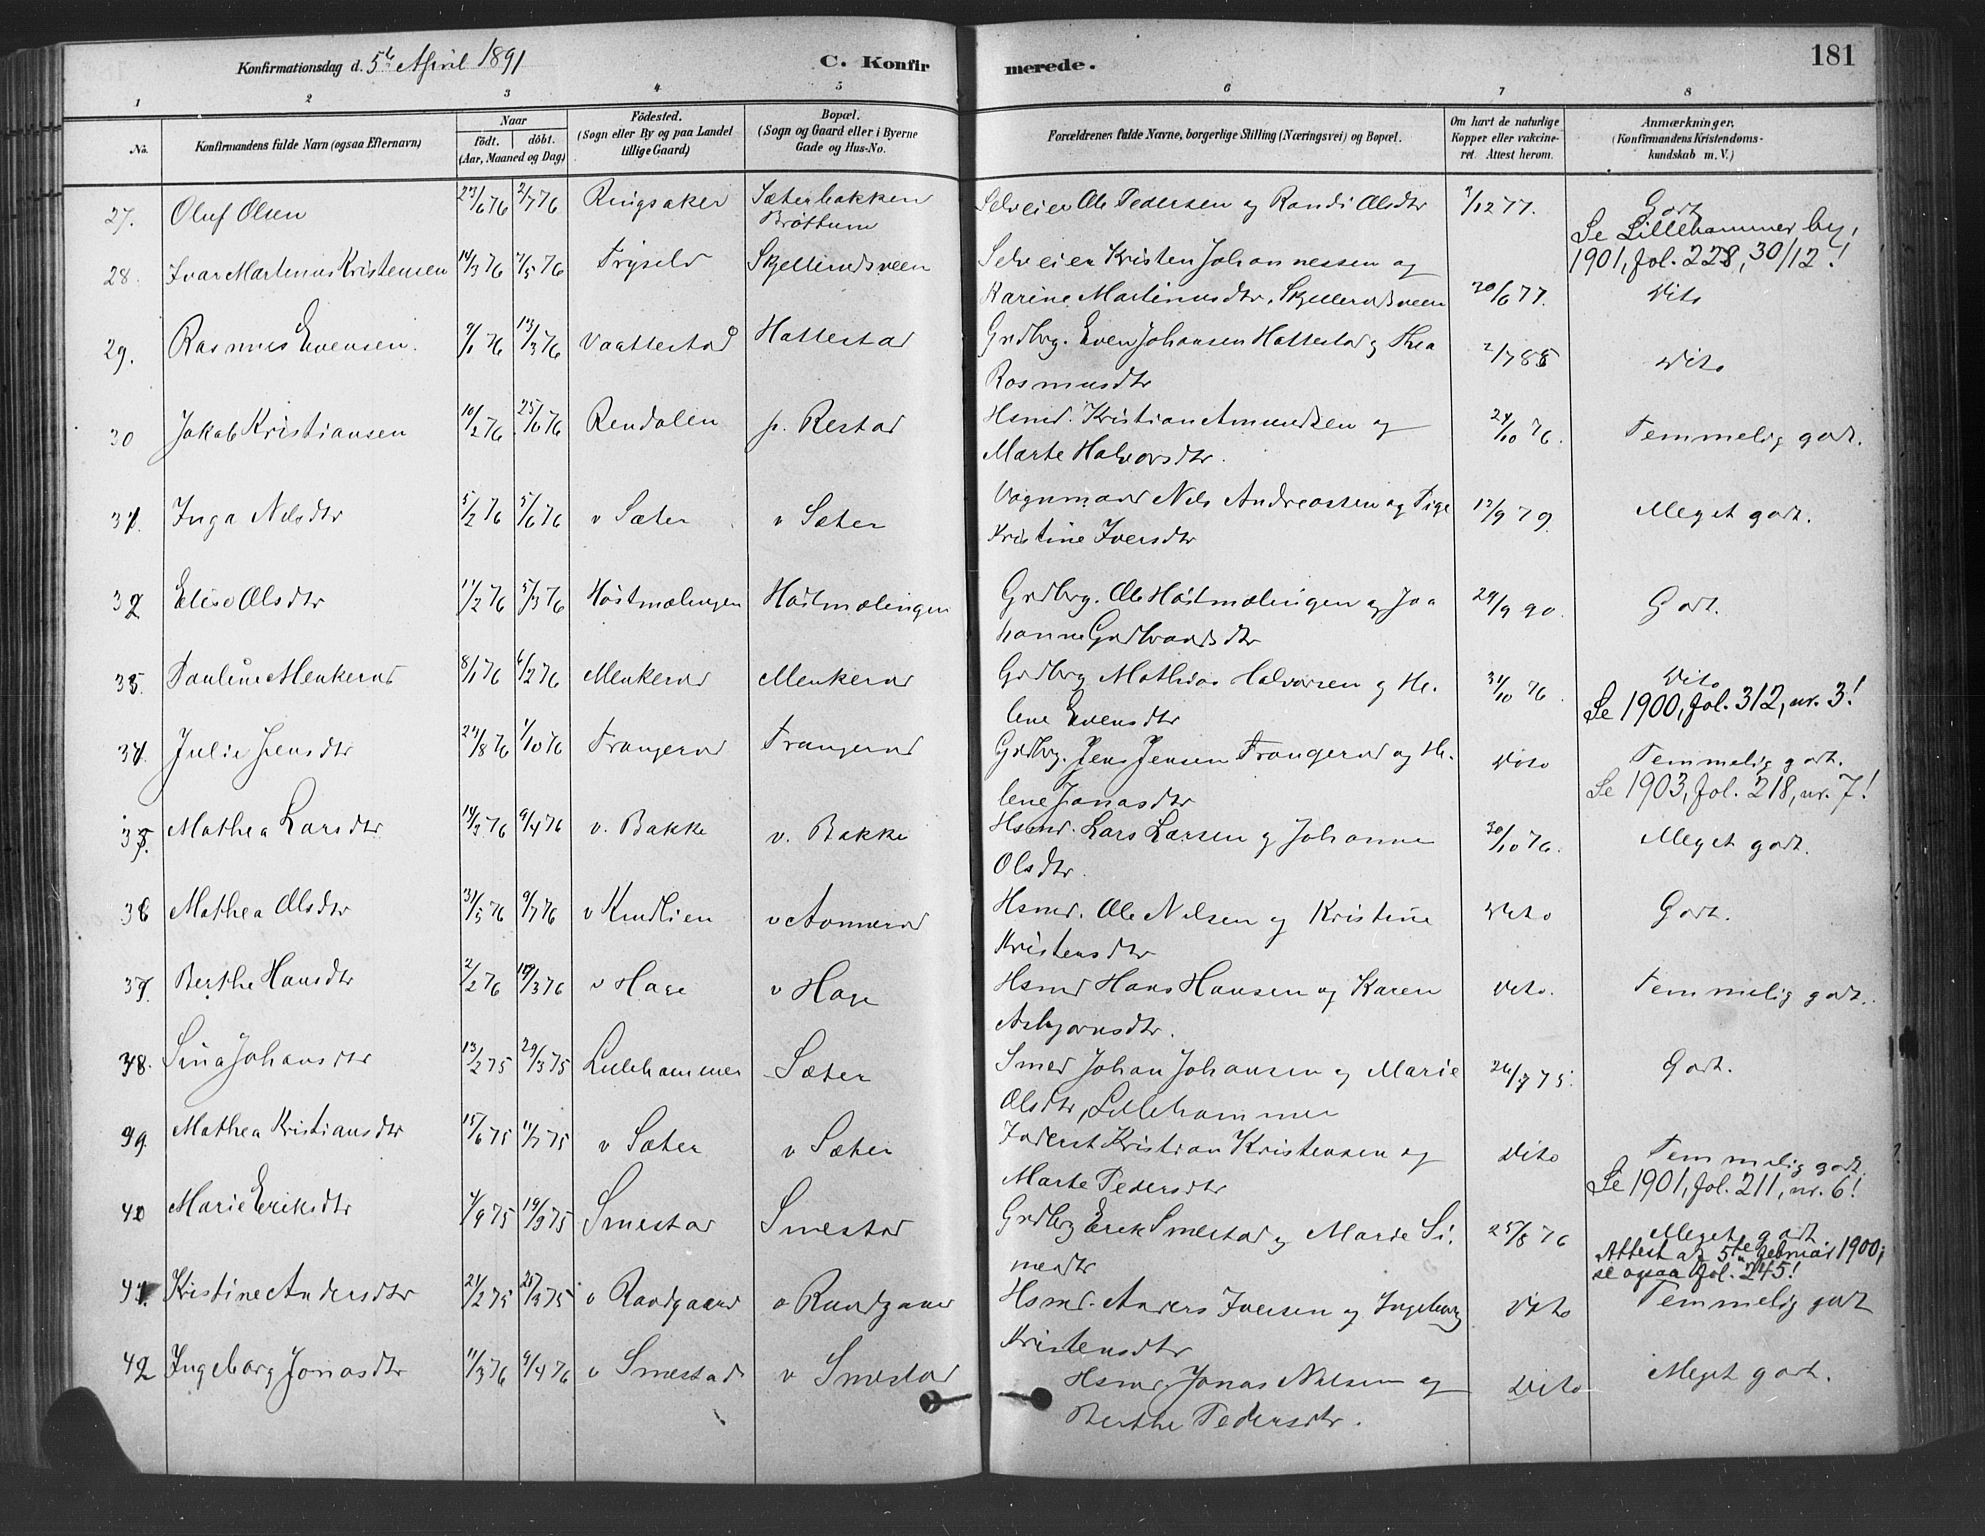 Konfirmationsdag d. 5te April 1891 C. Konfirmerede. 181
1 2 3 4 5 6 7 8
No. Konfirmandens fulde Navn (ogsaa Efternavn) Naar födt. döbt. (Aar, Maaned og Dag) Födested. (Sogn eller By og paa Landet tillige Gaard) Bopæl. (Sogn og Gaard eller i Byerne Gade og Hus-No. Forældrenes fulde Navne, borgerlige Stilling (Næringsvei) og Bopæl. Om havt de naturlige Kopper eller vakcineret. Attest herom. Anmærkninger. (Konfirmandens Kristendomskundskab m. V.)
27. Oluf Olsen 23/6 76 2/7 76 Ringsaker Sæterbakken Brøttum Selveier Ole Pedersen og Randi Olsdtr 3/12 77. Godt
Se Lillehammer by, 1901, fol. 228, 30/12!
28. Ivar Martinus Kristensen 14/3 76 7/5 76 Trysild Skjellerudsveen Selveier Kristen Johannessen og
Karine Martinusdtr. Skjellerudsveen 20/6 77. Dito
29. Rasmus Evensen. 9/1 76 13/3 76 Vaattestad Hattestad Grdbrg. Even Johansen Hattestad og Thea
Rasmusdtr 2/7 88 Dito
30 Jakob Kristiansen 10/2 76 25/6 76 Rendalen p. Restad Hsmd. Kristian Amundsen og
Marte Halvorsdtr. 24/10 76. Temmelig godt.
31. Inga Nilsdtr 5/2 76 5/6 76 v Sæter v Sæter Vognmand Nils Andreassen og Pige
Kristine Iversdtr 12/9 79. Meget godt.
32 Elise Olsdtr 11/2 76 5/3 76 Høstmælingen Høstmælingen Grdbrg. Ole Høstmælingen og Jo
hanne Gudbrandsdtr 29/9 90. Godt.
33. Pauline Menkerud 8/1 76 6/2 76 Menkerud Menkerud Grdbrg Mathias Halvorsen og He-
lene Evensdtr 31/10 76 Dito
Se 1900, fol. 312, nr. 3!
34. Julie Jensdtr 23/8 76 1/10 76 Frangerud Frangerud Grdbrg. Jens Jensen Frangerud og He-
lene Jonasdtr Dito Temmelig godt.
Se 1903, fol. 218, nr. 7!
35. Mathea Larsdtr 14/3 76 9/4 76 v. Bakke v. Bakke Hsmd. Lars Larsen og Johanne
Olsdtr. 30/10 76. Meget godt.
36 Mathea Olsdtr 31/5 76 9/7 76 v Kindlien v Aannerud Hsmd. Ole Nilsen og Kristine
Kristensdtr Dito Godt.
37. Berthe Hansdtr 2/2 76 19/3 76 v Hage v Hage Hsmd Hans Hansen og Karen
Asbjørnsdtr. Dito. Temmelig godt.
38. Sina Johansdtr 13/2 75 29/3 75 Lillehammer Sæter Smed Johan Johansen og Marie
Olsdtr, Lillehammer 26/7 75. Godt.
39. Mathea Kristiansdtr 15/6 75 11/7 75 v Sæter v Sæter Inderst Kristian Kristensen og
Marte Pedersdtr Dito Temmelig godt
Se 1901, fol. 211, nr. 6!
40 Marie Eriksdtr 7/9 75 19/9 75 Smestad Smestad Grdbrg Erik Smestad og Marie Si-
mensdtr 25/8 76 Meget godt
Attest ad 5te februar 1900, se ogsaa fol. 245!
41. Kristine Andersdtr 21/2 75 28/3 75 v Randgaard v Randgaard Hsmd. Anders Iversen og Ingeborg
Kristensdtr Dito Temmelig godt
42 Ingeborg Jonasdtr 11/3 76 9/4 76 v Smestad v Smestad Hsmd. Jonas Nilsen og
Berthe Pedersdtr. Dito Meget godt.